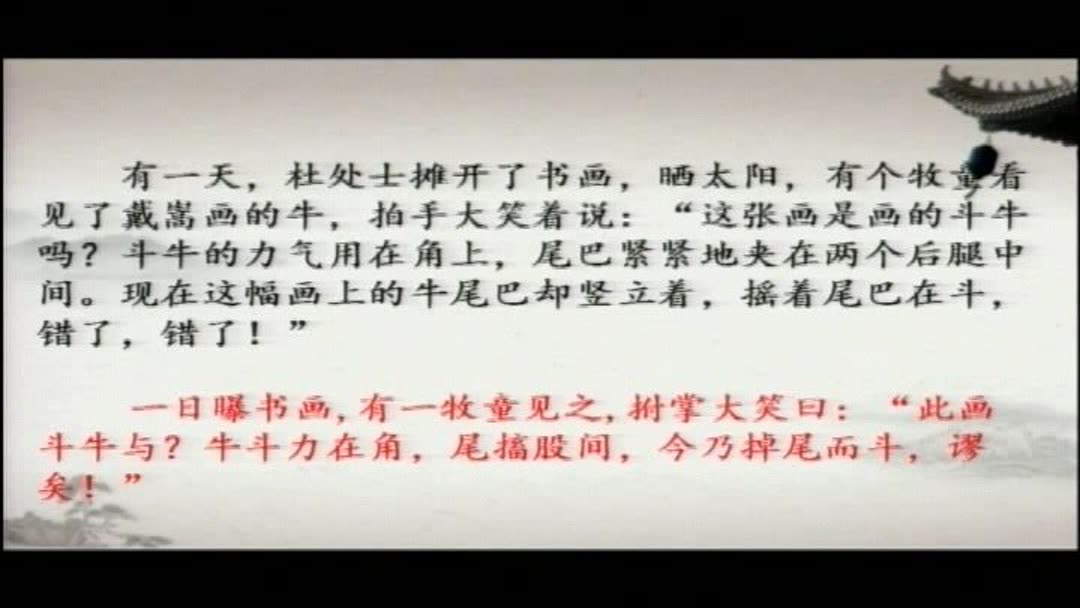 有一天，杜处士摊开了书画，晒太阳，有个牧童看
见了戴嵩画的牛，拍手大笑着说：“这张画是画的斗牛
吗？斗牛的力气用在角上，尾巴紧紧地夹在两个后腿中
间。现在这幅画上的牛尾巴却竖立着，摇着尾巴在斗，
错了，错了！”
一日曝书画,有一牧童见之,拊掌大笑曰：“此画
斗牛与？牛斗力在角，尾搐股间，今乃掉尾而斗，谬
矣！”